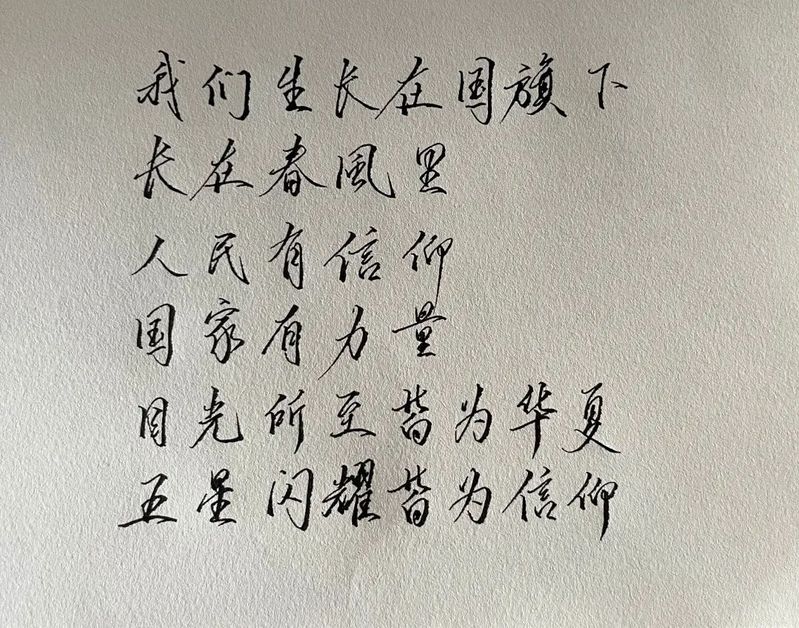 我们生长在国旗下
长在春風里
人民有信仰
国家有力量
目光所至皆为华夏
五星闪耀皆为信仰